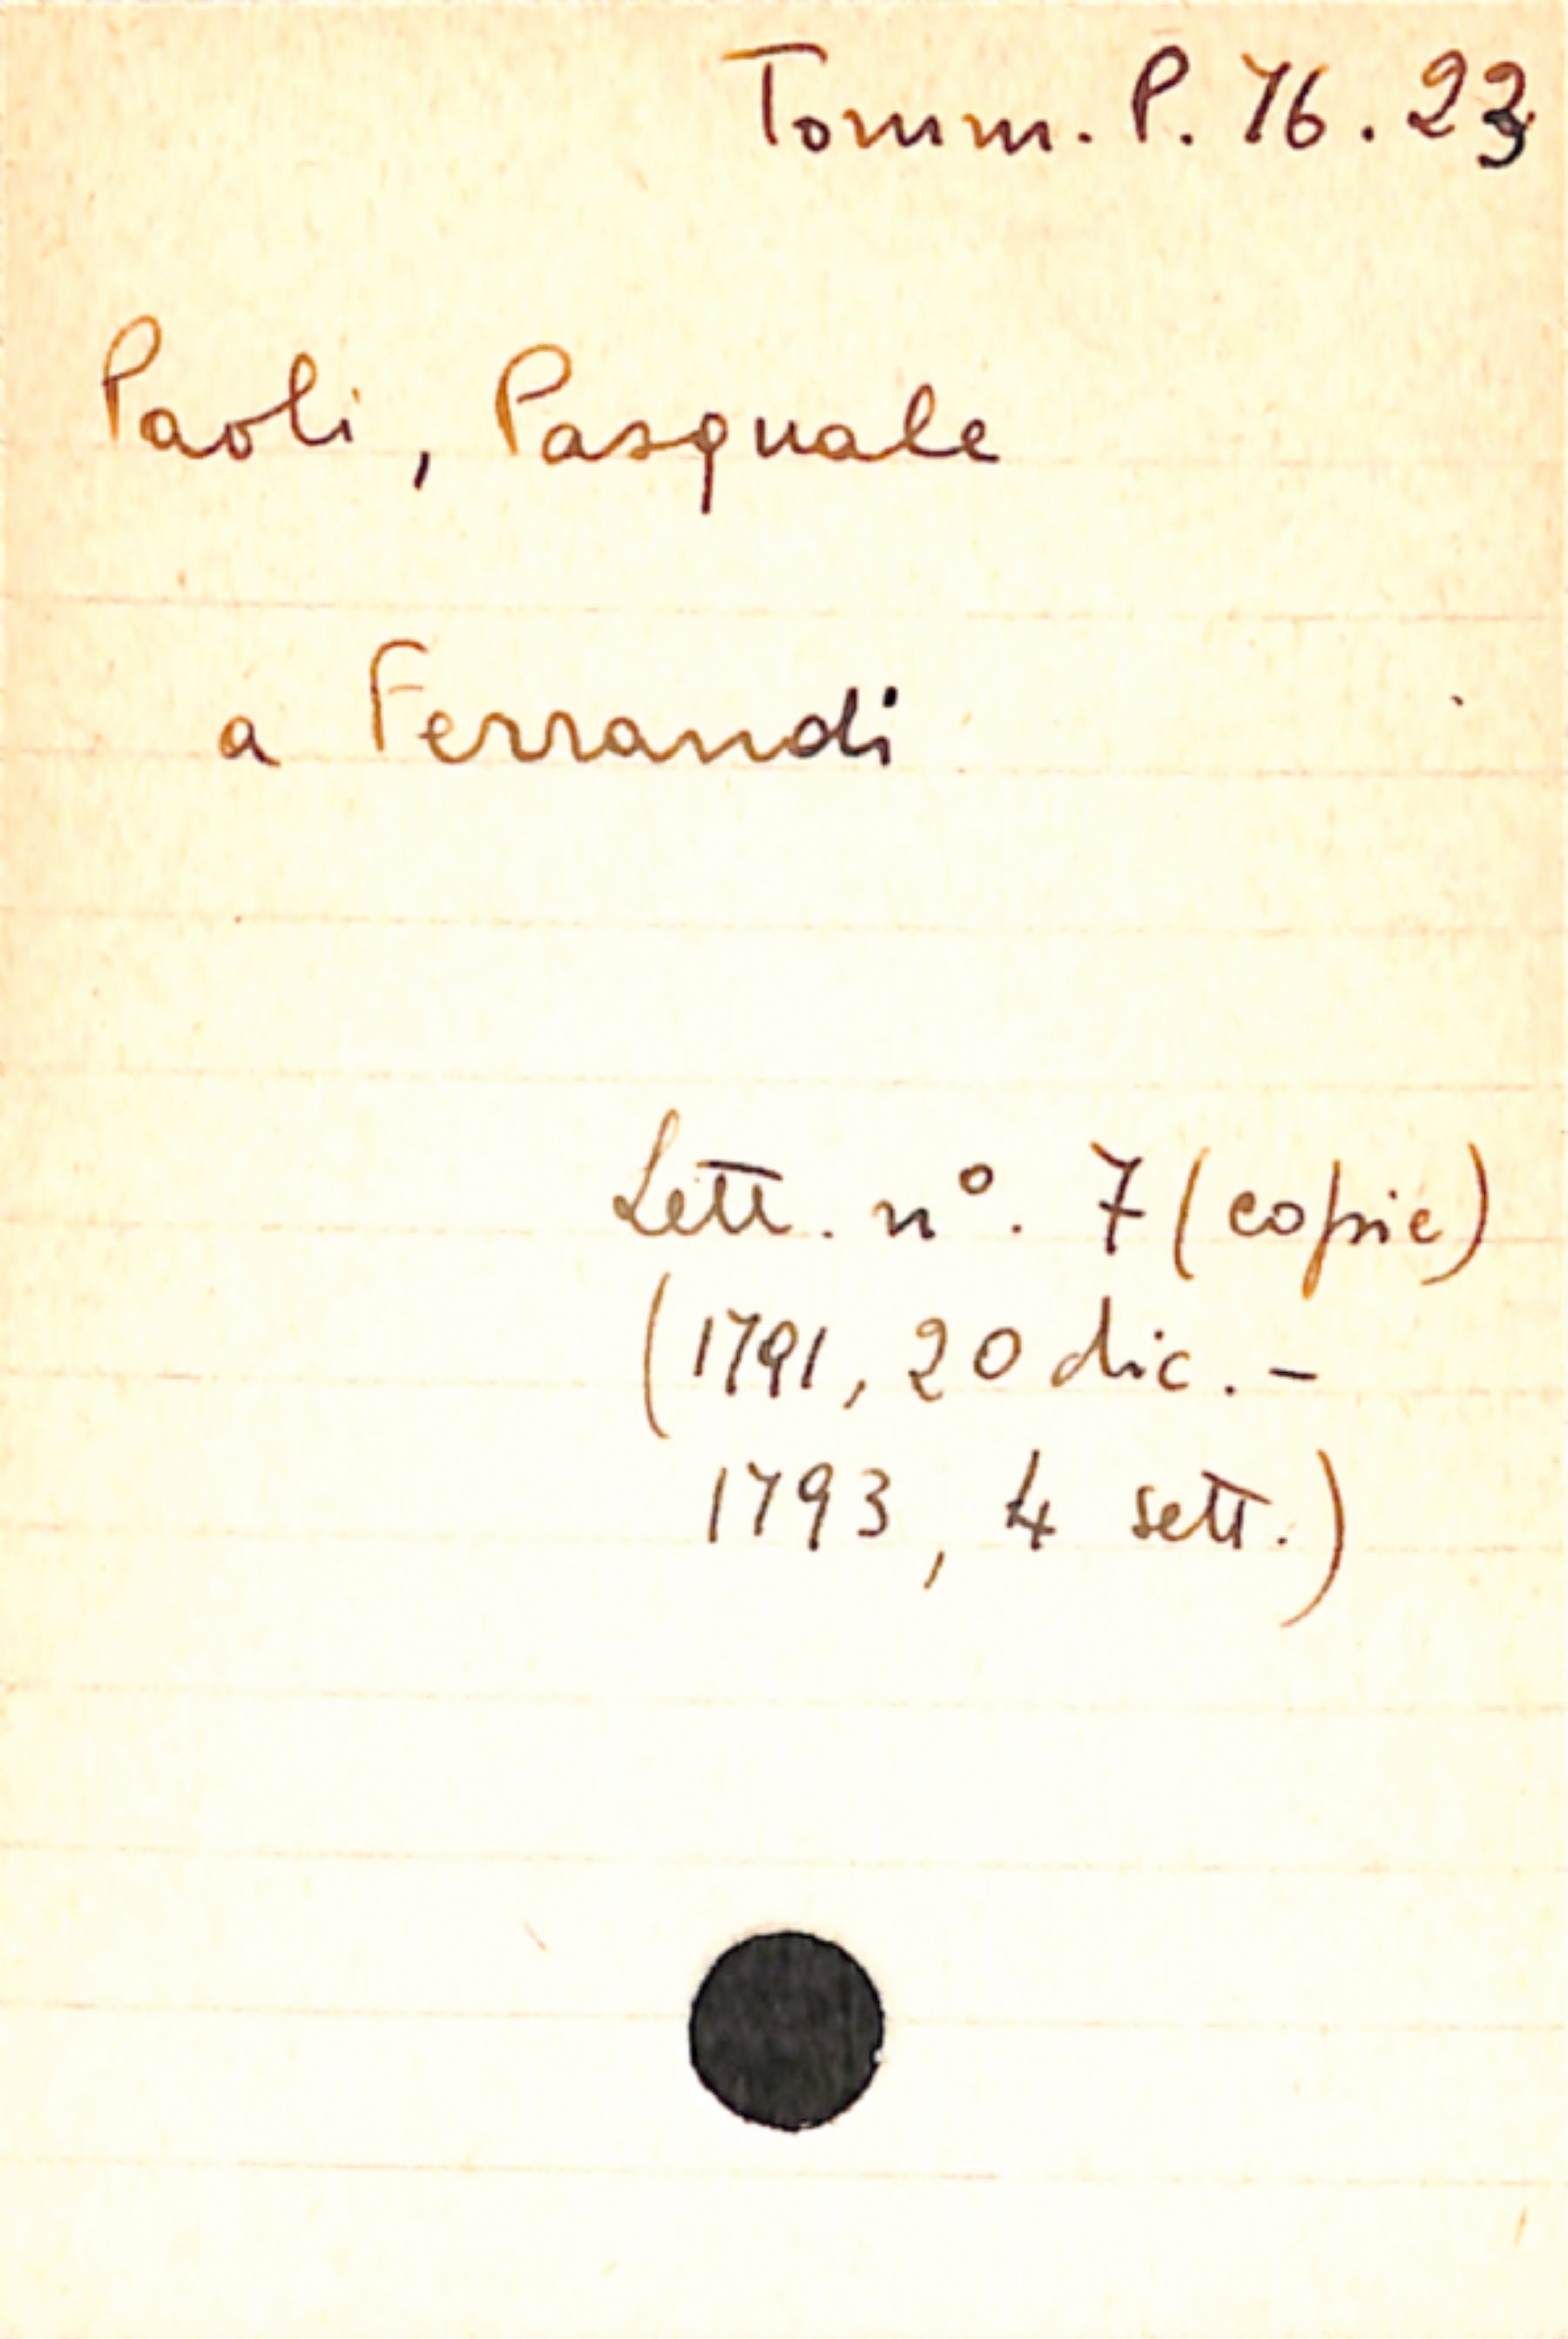 Tomm. P. 76. 23
Paoli, Pasquale
a Ferrandi
Lett. n°. 7 (copie)
(1791, 20 dic. -
1793, 4 sett.)